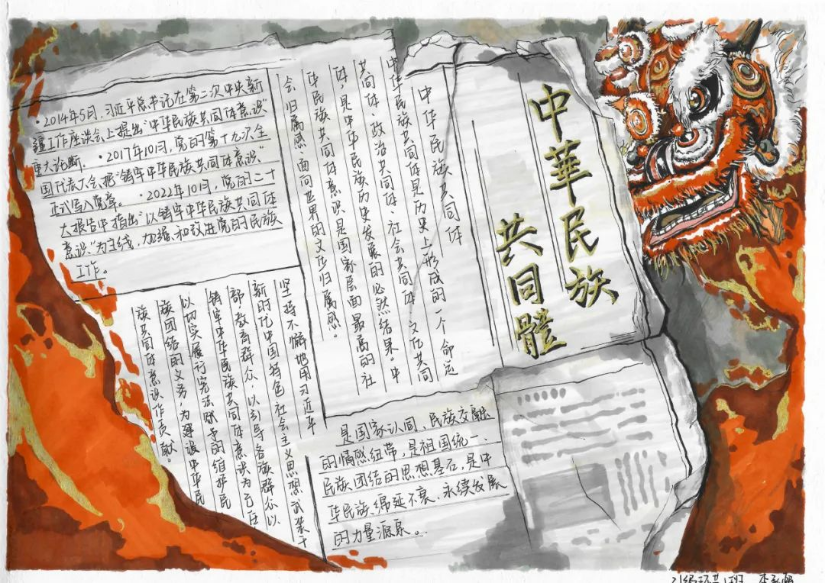 中華民族
共同體
中华民族共同体
中华民族共同体是历史上形成的一个命运
共同体、政治共同体、社会共同体、文化共同
体，是中华民族历史发展的必然结果。中
华民族共同体意识是国家层面最高的社
会归属感、面向世界的文化归属感。
·2014年5月，习近平总书记在第二次中央新
疆工作座谈会上提出“中华民族共同体意识”
重大论断。·2017年10月，党的第十九次全
国代表大会把“铸牢中华民族共同体意识”
正式写入党章。·2022年10月，党的二十
大报告中指出“以铸牢中华民族共同体
意识”为主线，加强和改进党的民族
工作。
坚持不懈地用习近平
新时代中国特色社会主义思想武装干
部教育群众，以引导各族群众以
铸牢中华民族共同体意识为己任
以切实履行宪法赋予的维护民
族团结的义务，为建设中华民
族共同体意识作贡献。
是国家认同、民族交融
的情感纽带，是祖国统一、
民族团结的思想基石，是中
华民族绵延不衰、永续发展
的力量源泉。